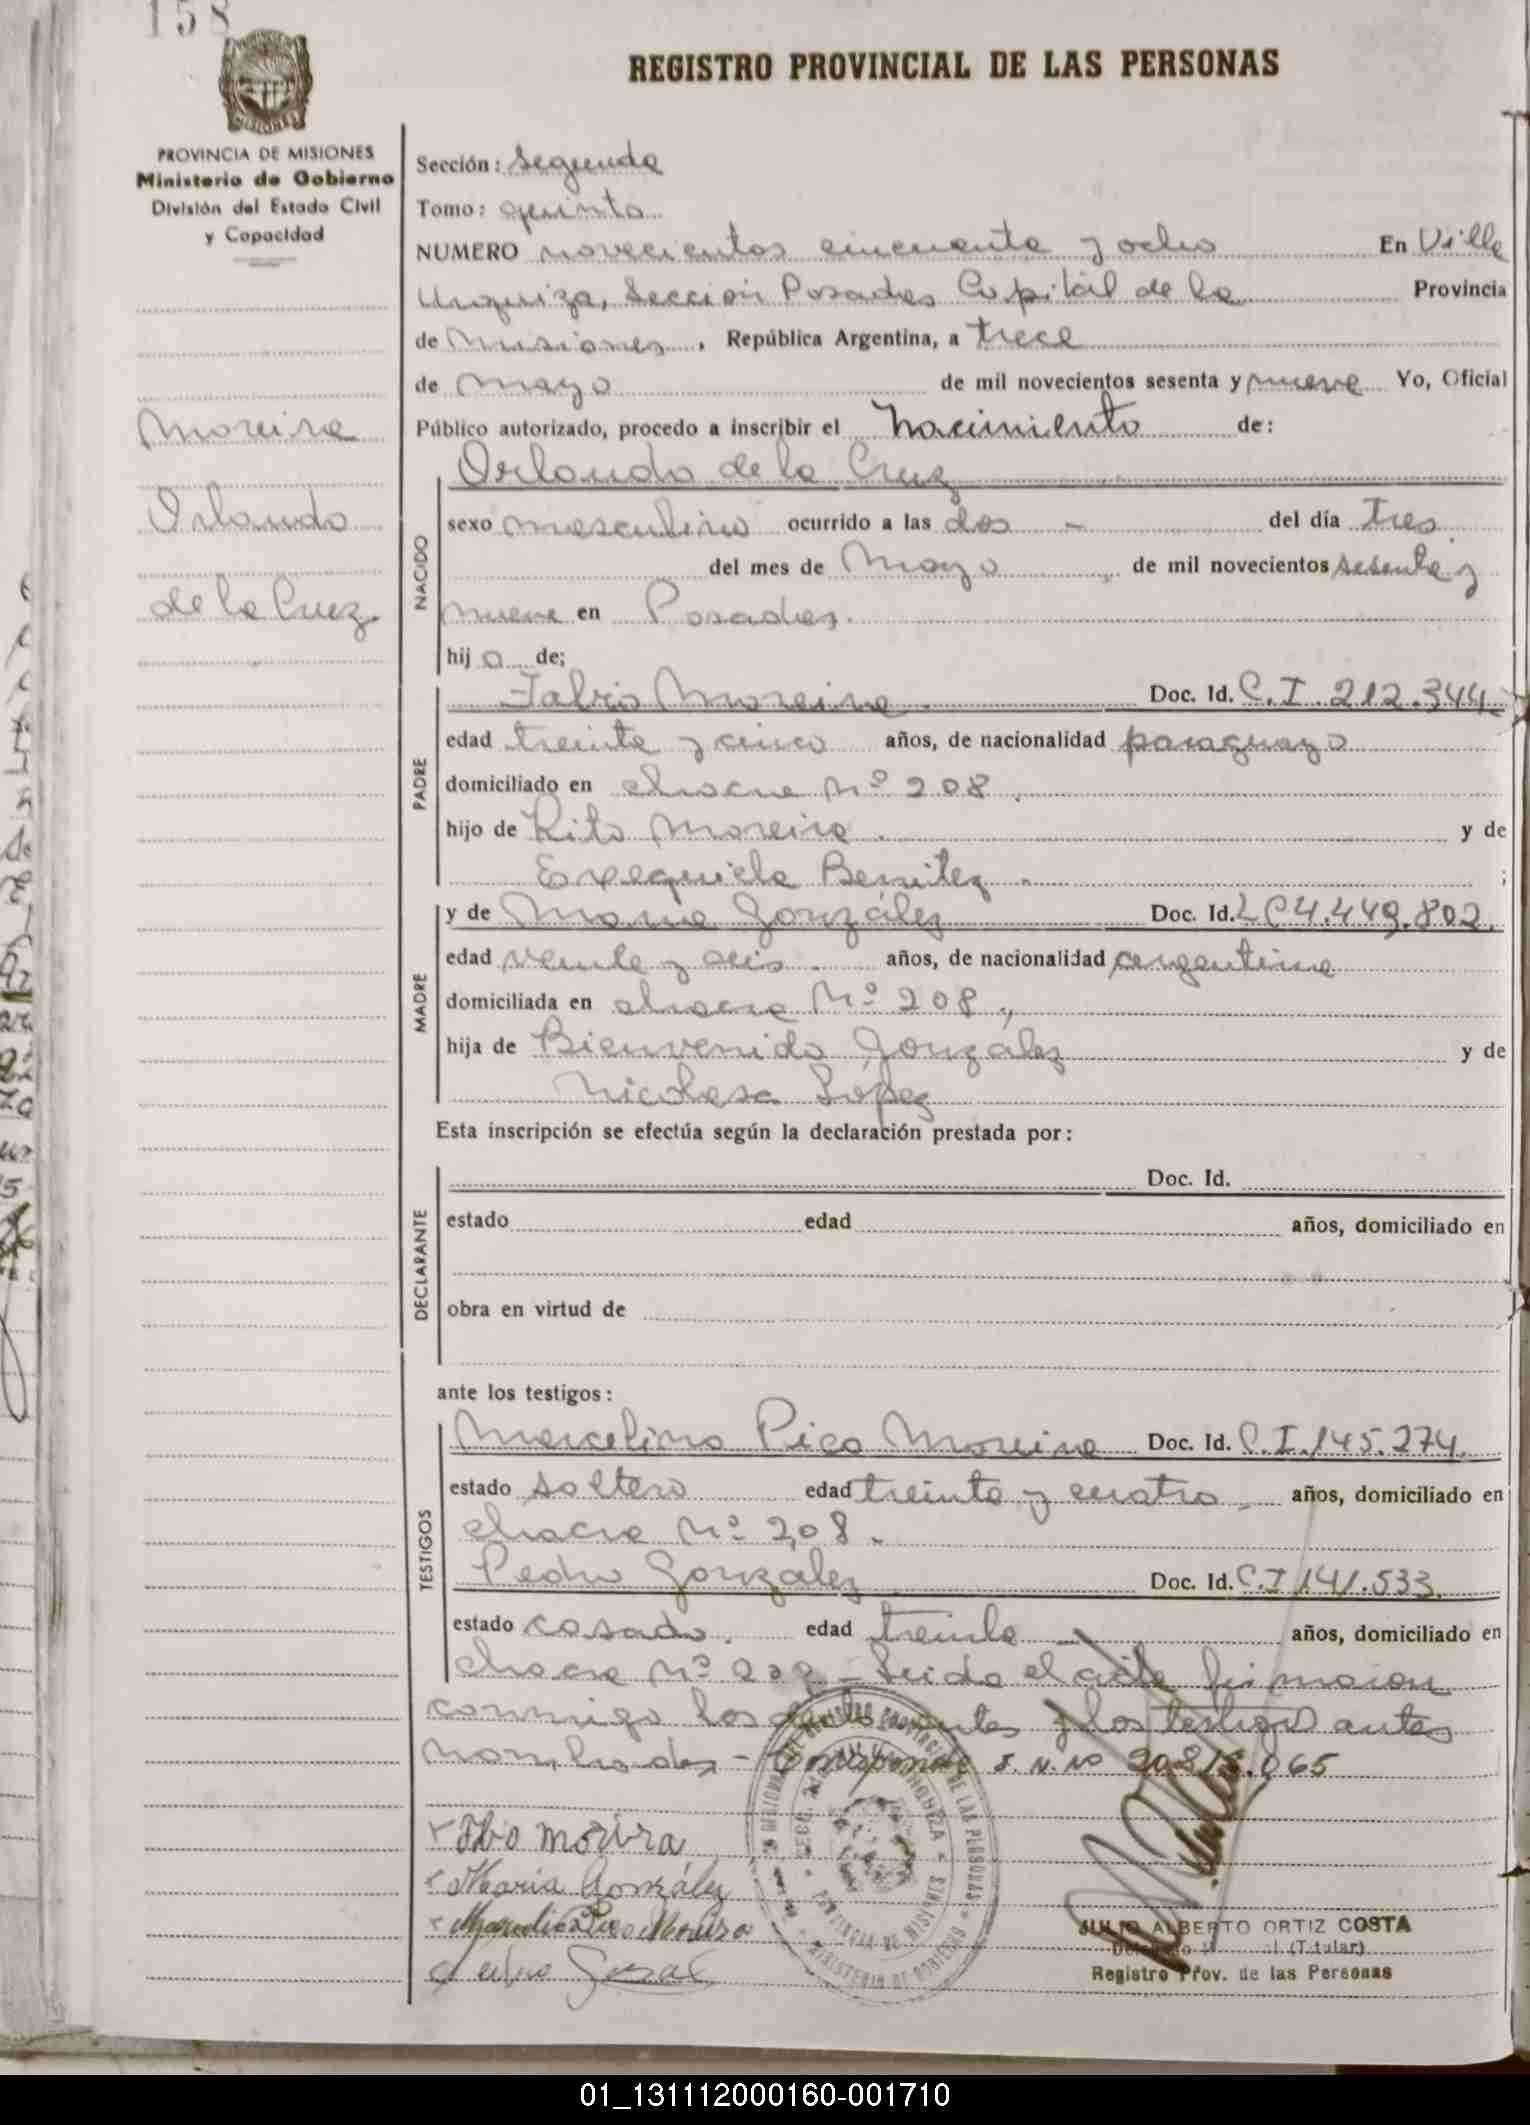 158
REGISTRO PROVINCIAL DE LAS PERSONAS
MISIONES
PROVINCIA DE MISIONES
Ministerio de Gobierno
División del Estado Civil
y Capacidad
Moreira
Orlando
de la Cruz
Sección: Segunda
Tomo: quinto
NUMERO novecientos cincuenta y ocho En Villa
Urquiza, Sección Posadas Capital de la Provincia
de Misiones, República Argentina, a trece
de mayo de mil novecientos sesenta y nueve Yo, Oficial
Público autorizado, procedo a inscribir el nacimiento de:
NACIDO
Orlando de la Cruz
sexo masculino ocurrido a las dos - del día tres
del mes de Mayo de mil novecientos sesenta y
nueve en Posadas.
hij o de;
PADRE
Moreira. Doc. Id. C.I. 212.344.
edad treinta y cinco años, de nacionalidad paraguayo
domiciliado en chacra Nº 208.
hijo de Moreira. y de
Exequiela Benitez - ;
MADRE
y de Maria González Doc. Id. LC 4.449.802.
edad veinte y seis. años, de nacionalidad argentina
domiciliada en chacra Nº 208.,
hija de Bienvenido González y de
Nicolasa López
Esta inscripción se efectúa según la declaración prestada por:
DECLARANTE
Doc. Id.
estado edad años, domiciliado en
obra en virtud de
ante los testigos:
TESTIGOS
Marcelino Pico Moreira Doc. Id. C.I. 145.274.
estado soltero edad treinta y cuatro, años, domiciliado en
chacra Nº 208.
Pedro González Doc. Id. C.I 141.533.
estado casado. edad treinta - años, domiciliado en
chacra Nº - Leido el acta firmaron
conmigo los y los testigos antes
nombrados - Corresponde I. N. Nº 065
Moreira
Maria González
JULIO ALBERTO ORTIZ COSTA
(Titular)
Registro Prov. de las Personas
01_131112000160-001710